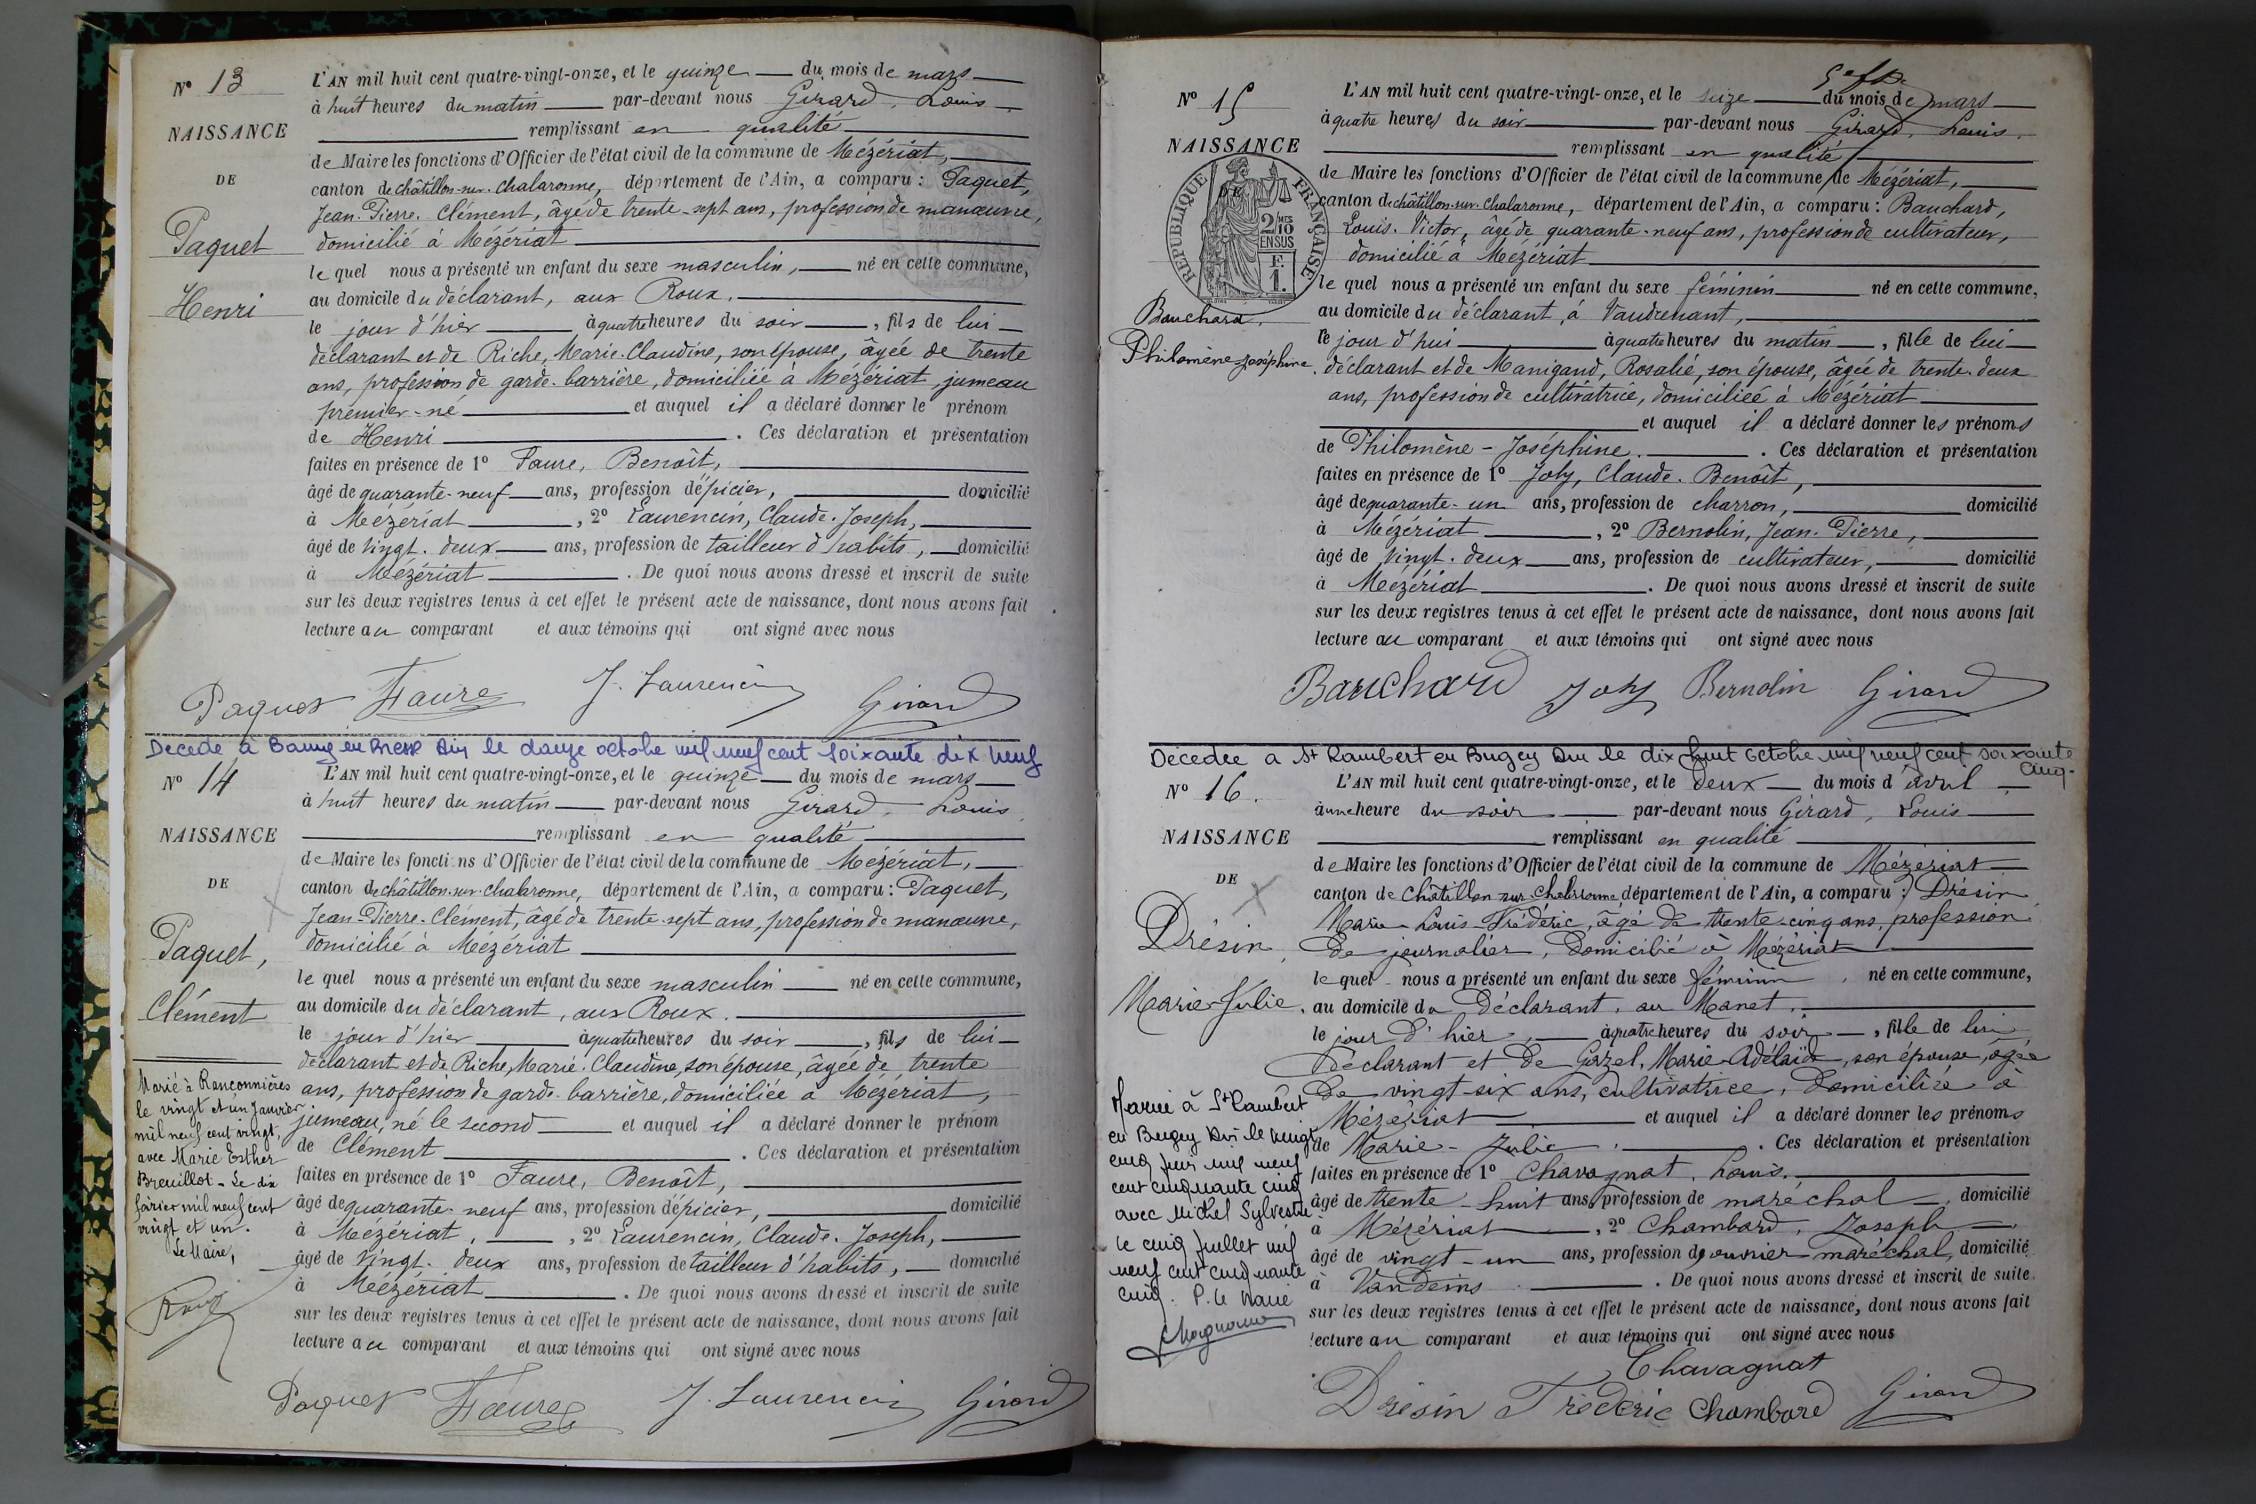 N° 13
NAISSANCE
DE
Paquet
Henri
L'AN mil huit cent quatre-vingt-onze, et le quinze du mois de mars
à huit heures du matin par-devant nous Girard, Louis
remplissant en qualité
de Maire les fonctions d'Officier de l'état civil de la commune de Mézériat,
canton de châtillon-sur-chalaronne, département de l'Ain, a comparu : Paquet,
Jean-Pierre-Clément, âgé de trente-sept ans, profession de manœuvre,
domicilié à Mézériat
lequel nous a présenté un enfant du sexe masculin, né en cette commune,
au domicile du déclarant, aux Roux.
le jour d'hier à quatre heures du soir, fils de lui
déclarant et de Riche, Marie-Claudine, son épouse, âgée de trente
ans, profession de garde-barrière, domiciliée à Mézériat, jumeau
premier-né et auquel il a déclaré donner le prénom
de Henri. Ces déclaration et présentation
faites en présence de 1° Faure, Benoît,
âgé de quarante-neuf ans, profession d'épicier, domicilié
à Mézériat, 2° Laurencin, Claude-Joseph,
âgé de vingt-deux ans, profession de tailleur d'habits, domicilié
à Mézériat. De quoi nous avons dressé et inscrit de suite
sur les deux registres tenus à cet effet le présent acte de naissance, dont nous avons fait
lecture au comparant et aux témoins qui ont signé avec nous
Paquet Faure J. Laurencin Girard
Décédé à Bourg en Bresse Ain le douze octobre mil neuf cent soixante dix neuf
N° 14
NAISSANCE
DE
Paquet,
Clément
Marié à Rançonnières
le vingt et un Janvier
mil neuf cent vingt,
avec Marie Esther
Breuillot - Le dix
février mil neuf cent
vingt et un.
Le Maire,
L'AN mil huit cent quatre-vingt-onze, et le quinze du mois de mars
à huit heures du matin par-devant nous Girard, Louis
remplissant en qualité
de Maire les fonctions d'Officier de l'état civil de la commune de Mézériat,
canton de châtillon-sur-chalaronne, département de l'Ain, a comparu : Paquet,
Jean-Pierre-Clément, âgé de trente-sept ans, profession de manœuvre,
domicilié à Mézériat
lequel nous a présenté un enfant du sexe masculin né en cette commune,
au domicile du déclarant, aux Roux.
le jour d'hier à quatre heures du soir, fils de lui
déclarant et de Riche, Marie-Claudine, son épouse, âgée de trente
ans, profession de garde-barrière, domiciliée à Mézériat,
jumeau, né le second et auquel il a déclaré donner le prénom
de Clément. Ces déclaration et présentation
faites en présence de 1° Faure, Benoît,
âgé de quarante-neuf ans, profession d'épicier, domicilié
à Mézériat, 2° Laurencin, Claude-Joseph,
âgé de vingt-deux ans, profession de tailleur d'habits, domicilié
à Mézériat. De quoi nous avons dressé et inscrit de suite
sur les deux registres tenus à cet effet le présent acte de naissance, dont nous avons fait
lecture au comparant et aux témoins qui ont signé avec nous
Paquet Faure J. Laurencin Girard
N° 15
NAISSANCE
DE
RÉPUBLIQUE FRANÇAISE
2/10 MES
EN SUS
F.
1.
Bauchard,
Philomène-Joséphine.
L'AN mil huit cent quatre-vingt-onze, et le seize du mois de mars
à quatre heures du soir par-devant nous Girard, Louis,
remplissant en qualité
de Maire les fonctions d'Officier de l'état civil de la commune de Mézériat,
canton de châtillon-sur-chalaronne, département de l'Ain, a comparu : Bauchard,
Louis-Victor, âgé de quarante-neuf ans, profession de cultivateur,
domicilié à Mézériat
lequel nous a présenté un enfant du sexe féminin né en cette commune,
au domicile du déclarant, à Vaudrenant,
le jour d'hui à quatre heures du matin, fille de lui
déclarant et de Manigand, Rosalie, son épouse, âgée de trente-deux
ans, profession de cultivatrice, domiciliée à Mézériat
et auquel il a déclaré donner les prénoms
de Philomène-Joséphine. Ces déclaration et présentation
faites en présence de 1° Joly, Claude-Benoît,
âgé de quarante-un ans, profession de charron, domicilié
à Mézériat, 2° Bernolin, Jean-Pierre,
âgé de vingt-deux ans, profession de cultivateur, domicilié
à Mézériat. De quoi nous avons dressé et inscrit de suite
sur les deux registres tenus à cet effet le présent acte de naissance, dont nous avons fait
lecture au comparant et aux témoins qui ont signé avec nous
Bauchard Joly Bernolin Girard
Décédée à St Rambert en Bugey Ain le dix huit octobre mil neuf cent soixante
cinq.
N° 16.
NAISSANCE
DE
Drésin,
Marie-Julie.
Mariée à St Rambert
en Bugey Ain le vingt
cinq juin mil neuf
cent cinquante cinq
avec Michel Sylvestre
le cinq juillet mil
neuf cent cinquante
cinq. P. le Maire
L'AN mil huit cent quatre-vingt-onze, et le deux du mois d'avril
à une heure du soir par-devant nous Girard, Louis
remplissant en qualité
de Maire les fonctions d'Officier de l'état civil de la commune de Mézériat
canton de Châtillon sur Chalaronne, département de l'Ain, a comparu : Drésin
Marie-Louis-Frédéric, âgé de trente-cinq ans, profession
de journalier, domicilié à Mézériat
lequel nous a présenté un enfant du sexe féminin, né en cette commune,
au domicile du déclarant, au Manet,
le jour d'hier, à quatre heures du soir, fille de lui
déclarant et de Gazel, Marie-Adélaïde, son épouse, âgée
de vingt-six ans, cultivatrice, domiciliée à
Mézériat et auquel il a déclaré donner les prénoms
de Marie-Julie. Ces déclaration et présentation
faites en présence de 1° Chavagnat, Louis.
âgé de trente-huit ans, profession de maréchal, domicilié
à Mézériat, 2° Chambard, Joseph,
âgé de vingt-un ans, profession d'ouvrier-maréchal, domicilié
à Vandeins. De quoi nous avons dressé et inscrit de suite
sur les deux registres tenus à cet effet le présent acte de naissance, dont nous avons fait
lecture au comparant et aux témoins qui ont signé avec nous
Chavagnat
Drésin Frédéric Chambard Girard